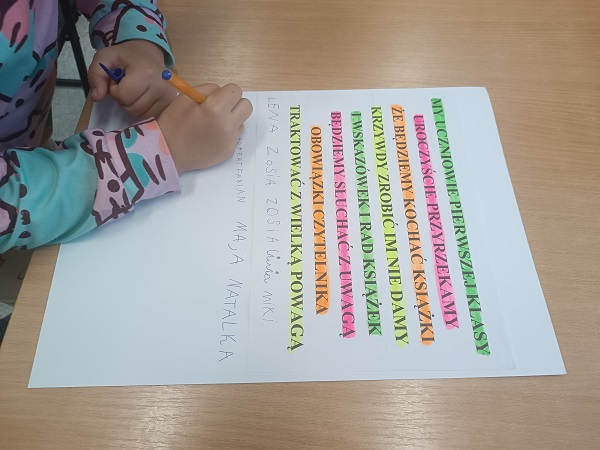 MY UCZNIOWIE PIERWSZEJ KLASY
UROCZYŚCIE PRZYRZEKAMY
ŻE BĘDZIEMY KOCHAĆ KSIĄŻKI
KRZYWDY ZROBIĆ IM NIE DAMY
I WSKAZÓWEK I RAD KSIĄŻEK
BĘDZIEMY SŁUCHAĆ Z UWAGĄ
OBOWIĄZKI CZYTELNIKA
TRAKTOWAĆ Z WIELKĄ POWAGĄ
LENA ZOSIA ZOSIA Liwia MIKI
FABIAN MAJA NATALKA